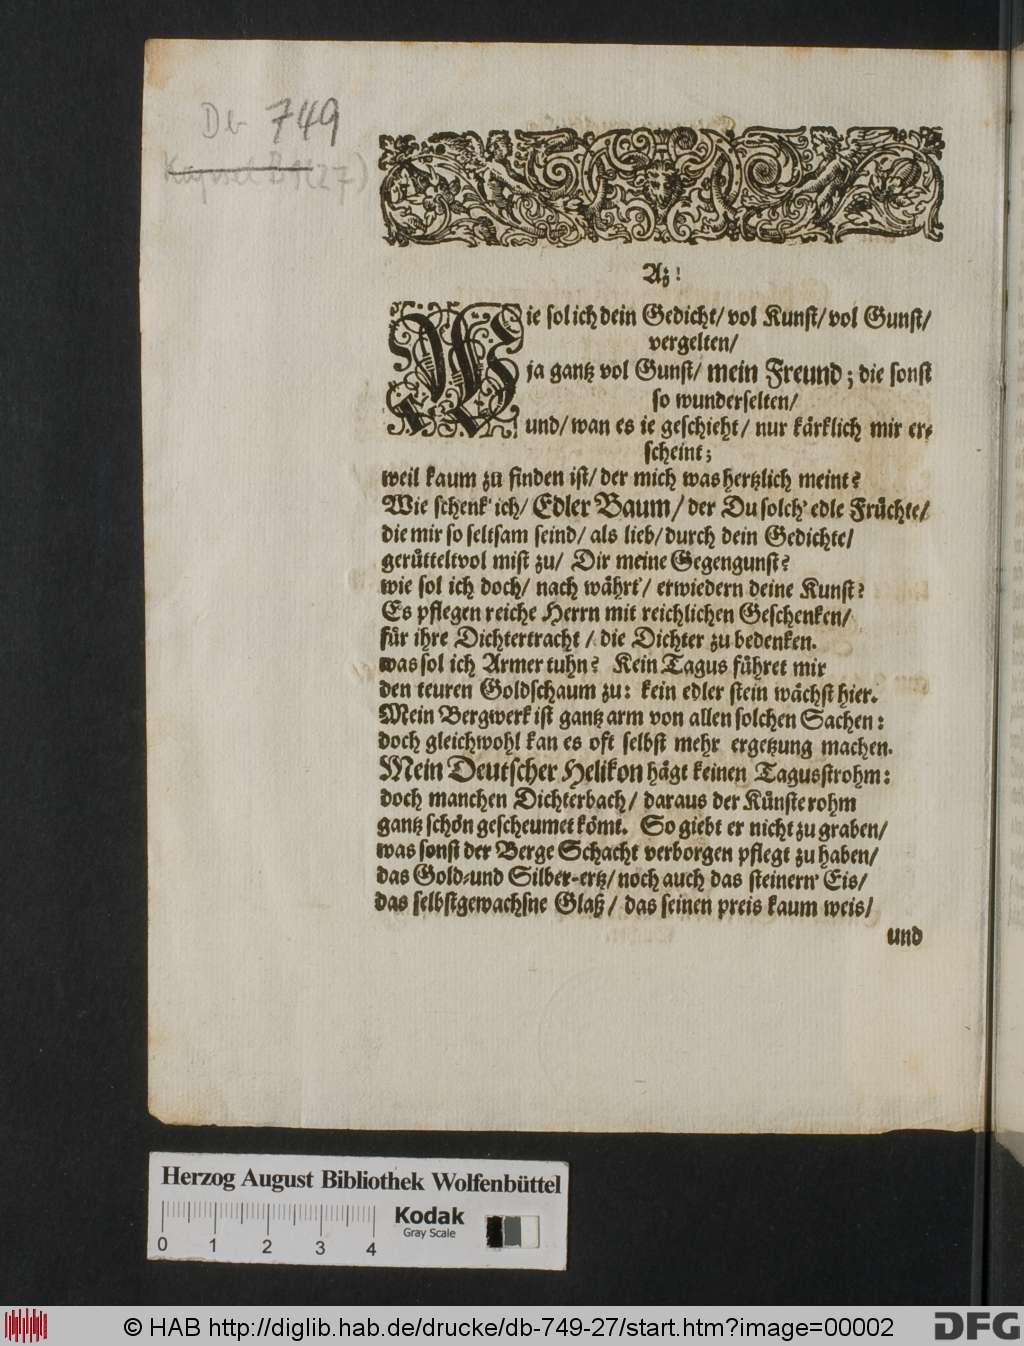 Db 749
Az!
Wie sol ich dein Gedicht/ vol Kunst/ vol Gunst/
vergelten/
ja gantz vol Gunst/ mein Freund; die sonst
so wunderselten/
und/ wan es ie geschieht/ nur kärklich mir er-
scheint;
weil kaum zu finden ist/ der mich was hertzlich meint?
Wie schenk' ich/ Edler Baum/ der Du solch' edle Früchte/
die mir so seltsam seind/ als lieb/ durch dein Gedichte/
gerütteltvol mist zu/ Dir meine Gegengunst?
wie sol ich doch/ nach währt'/ erwiedern deine Kunst?
Es pflegen reiche Herrn mit reichlichen Geschenken/
für ihre Dichtertracht/ die Dichter zu bedenken.
was sol ich Armer tuhn? Kein Tagus führet mir
den teuren Goldschaum zu: kein edler stein wächst hier.
Mein Bergwerk ist gantz arm von allen solchen Sachen:
doch gleichwohl kan es oft selbst mehr ergetzung machen.
Mein Deutscher Helikon hägt keinen Tagusstrohm:
doch manchen Dichterbach/ daraus der Künste rohm
gantz schön gescheumet kömt. So giebt er nicht zu graben/
was sonst der Berge Schacht verborgen pflegt zu haben/
das Gold-und Silber-ertz/ noch auch das steinern' Eis/
das selbstgewachsne Glaß/ das seinen preis kaum weis/
und
Herzog August Bibliothek Wolfenbüttel
Kodak
Gray Scale
0 1 2 3 4
© HAB http://diglib.hab.de/drucke/db-749-27/start.htm?image=00002
DFG